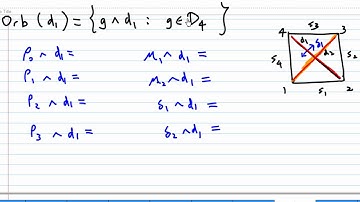 Orb (d₁) = { g ∧ d₁ : g ∈ D₄ }
ρ₀ ∧ d₁ = μ₁ ∧ d₁ =
ρ₁ ∧ d₁ = μ₂ ∧ d₁ =
ρ₂ ∧ d₁ = δ₁ ∧ d₁ =
ρ₃ ∧ d₁ = δ₂ ∧ d₁ =
4 s₃ 3
d₁ δ₁
s₄ d₂ s₂
1 s₁ 2